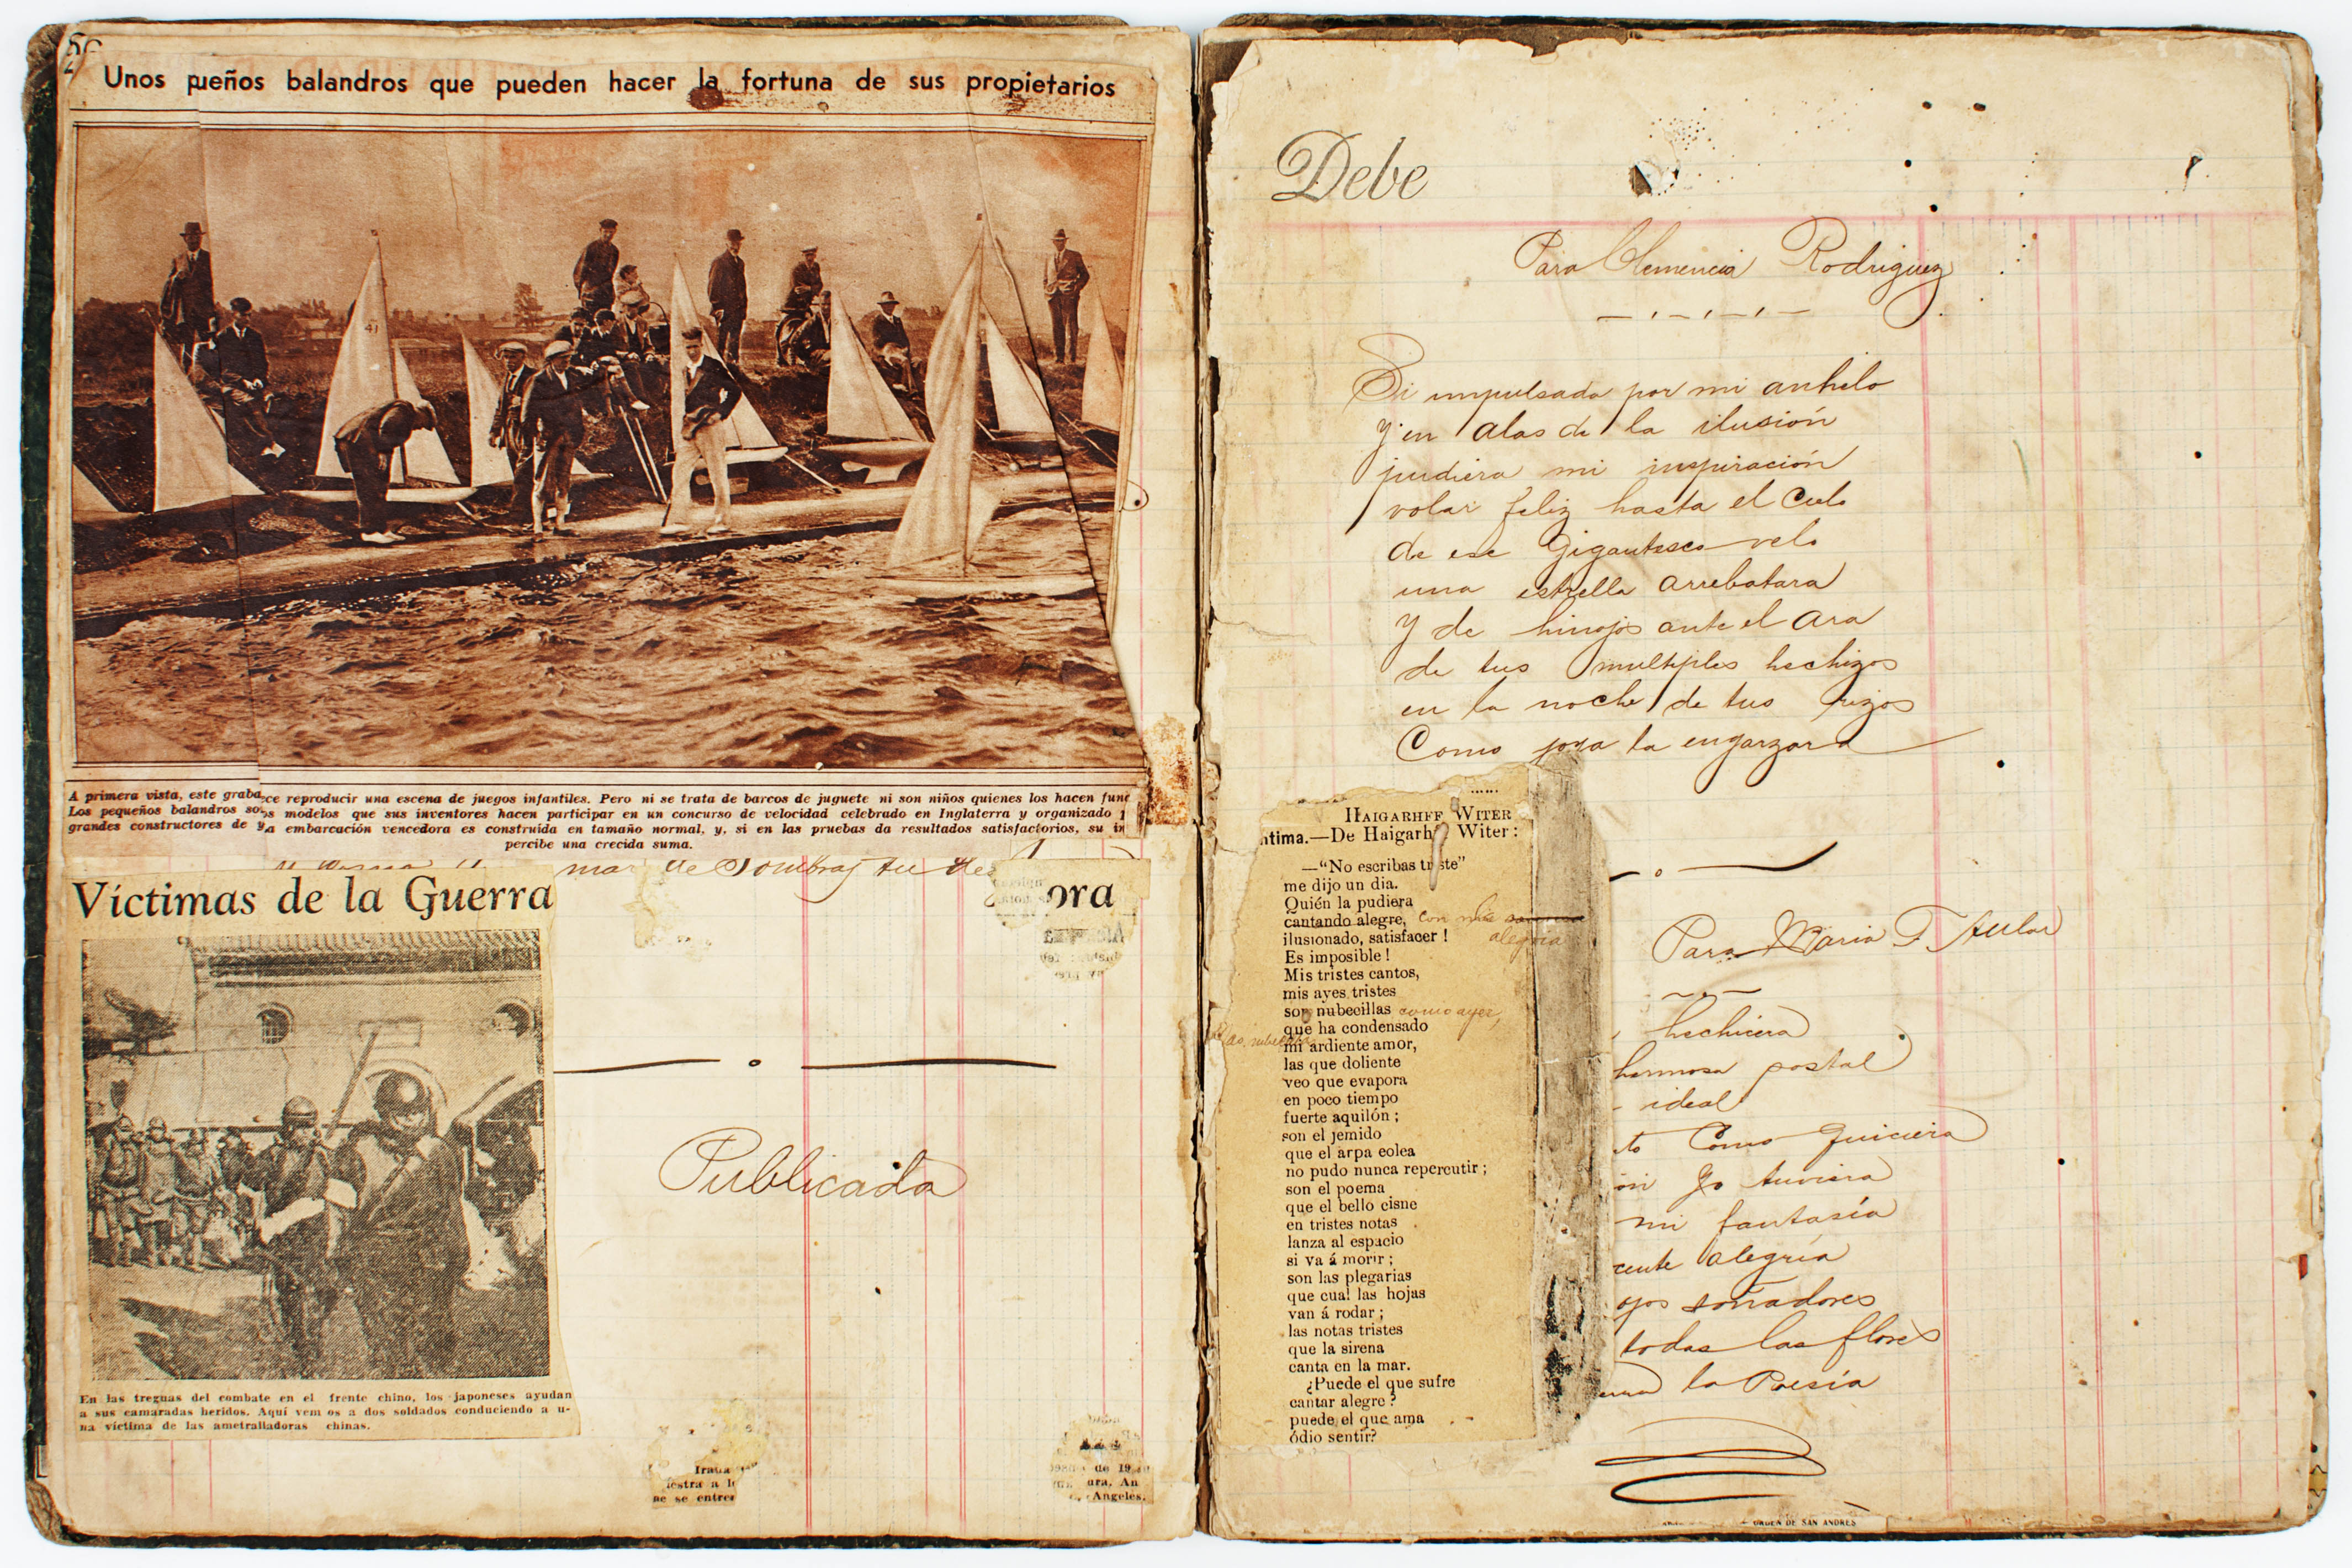 Unos pueños balandros que pueden hacer la fortuna de sus propietarios
41
A primera vista, este graba ce reproducir una escena de juegos infantiles. Pero ni se trata de barcos de juguete ni son niños quienes los hacen func
Los pequeños balandros so s modelos que sus inventores hacen participar en un concurso de velocidad celebrado en Inglaterra y organizado
grandes constructores de y a embarcación vencedora es construída en tamaño normal, y, si en las pruebas da resultados satisfactorios, su in
percibe una crecida suma.
mar de Sombras tu
Víctimas de la Guerra
ora
En las treguas del combate en el frente chino, los japoneses ayudan
a sus camaradas heridos. Aquí vem os a dos soldados conduciendo a u-
na víctima de las ametralladoras chinas.
Publicada
de 19
ura. An
Angeles.
Debe
Para Clemencia Rodriguez
Si impulsada por mi anhelo
Y en alas de la ilusión
pudiera mi inspiración
volar feliz hasta el Cielo
de ese Gigantesco velo
una estrella arrebatara
Y de hinojos ante el Ara
de tus multiples hechizos
en la noche de tus rizos
Como joya la engarzara
HAIGARHFF WITER
ntima.—De Haigarh Witer:
—"No escribas triste"
me dijo un dia.
Quién la pudiera
cantando alegre, con mi
ilusionado, satisfacer ! alegria
Es imposible !
Mis tristes cantos,
mis ayes tristes
son nubecillas como ayer,
que ha condensado
mi ardiente amor,
las que doliente
veo que evapora
en poco tiempo
fuerte aquilón ;
son el jemido
que el arpa eolea
no pudo nunca repercutir ;
son el poema
que el bello cisne
en tristes notas
lanza al espacio
si va á morir ;
son las plegarias
que cual las hojas
van á rodar ;
las notas tristes
que la sirena
canta en la mar.
¿Puede el que sufre
cantar alegre ?
puede el que ama
ódio sentir?
Para Maria F Tular
hechicera
hermosa postal
ideal
to Como Quiciera
ón Yo tuviera
mi fantasía
cente alegría
ojos soñadores
todas las flores
la Poesía
ORDEN DE SAN ANDRES